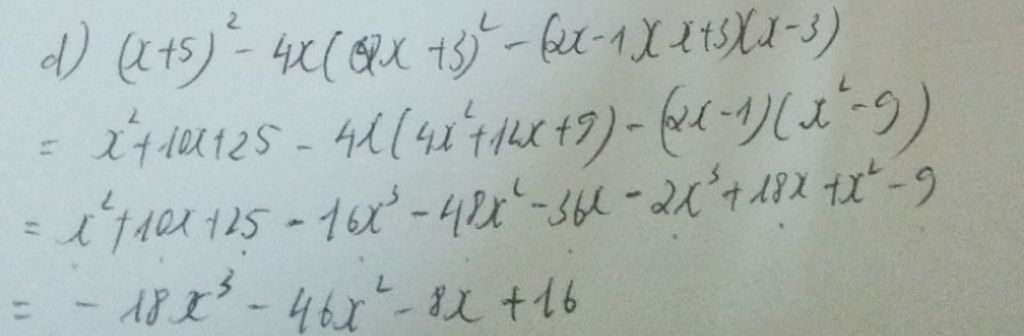 d) (x+5)² - 4x(2x+3)² - (2x-1)(x+3)(x-3)
= x²+10x+25 - 4x(4x²+12x+9) - (2x-1)(x²-9)
= x²+10x+25 - 16x³ - 48x² - 36x - 2x³ + 18x + x² - 9
= - 18x³ - 46x² - 8x + 16